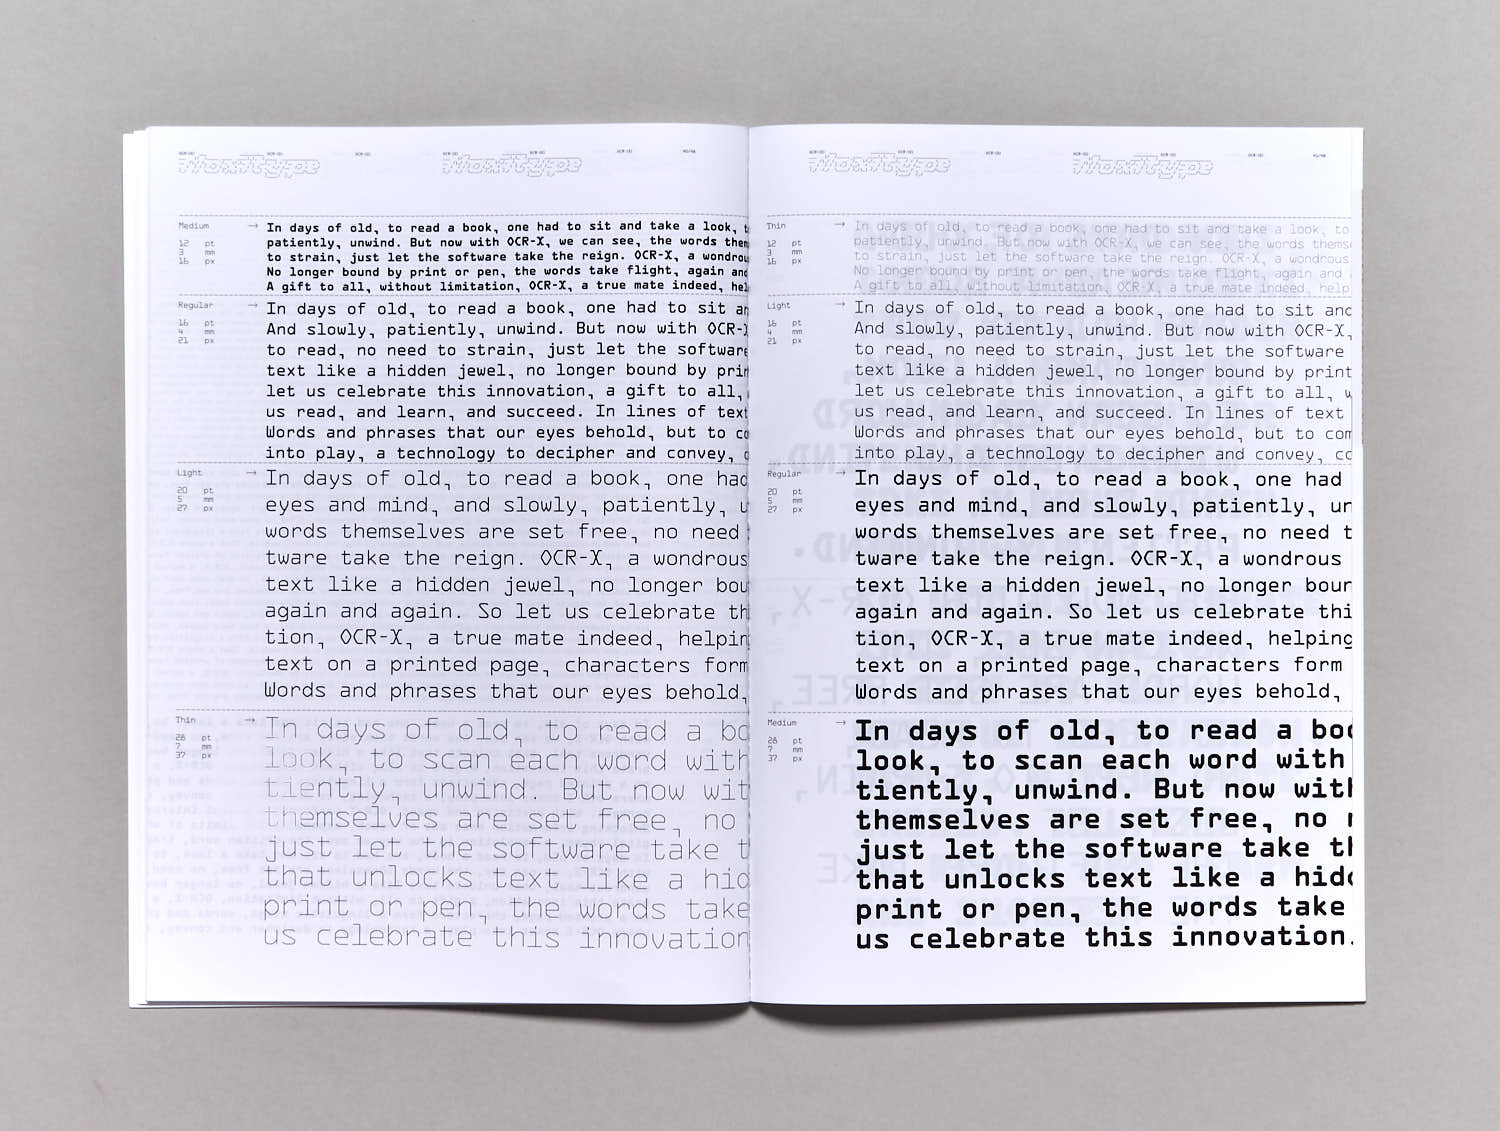 Maxitype
Maxitype
Medium →
12 pt
3 mm
16 px
In days of old, to read a book, one had to sit and take a look,
patiently, unwind. But now with OCR-X, we can see, the words them
to strain, just let the software take the reign. OCR-X, a wondrou
No longer bound by print or pen, the words take flight, again and
A gift to all, without limitation, OCR-X, a true mate indeed, hel
Regular →
16 pt
4 mm
21 px
In days of old, to read a book, one had to sit an
And slowly, patiently, unwind. But now with OCR-X
to read, no need to strain, just let the software
text like a hidden jewel, no longer bound by prin
let us celebrate this innovation, a gift to all,
us read, and learn, and succeed. In lines of text
Words and phrases that our eyes behold, but to co
into play, a technology to decipher and convey,
Light →
20 pt
5 mm
27 px
In days of old, to read a book, one had
eyes and mind, and slowly, patiently, u
words themselves are set free, no need
tware take the reign. OCR-X, a wondrous
text like a hidden jewel, no longer bou
again and again. So let us celebrate th
tion, OCR-X, a true mate indeed, helpin
text on a printed page, characters form
Words and phrases that our eyes behold,
Thin →
28 pt
7 mm
37 px
In days of old, to read a bo
look, to scan each word with
tiently, unwind. But now wit
themselves are set free, no
just let the software take t
that unlocks text like a hid
print or pen, the words take
us celebrate this innovation
Maxitype
Maxitype
Thin →
12 pt
3 mm
16 px
In days of old, to read a book, one had to sit and take a look, to
patiently, unwind. But now with OCR-X, we can see, the words thems
to strain, just let the software take the reign. OCR-X, a wondrous
No longer bound by print or pen, the words take flight, again and
A gift to all, without limitation, OCR-X, a true mate indeed, help
Light →
16 pt
4 mm
21 px
In days of old, to read a book, one had to sit and
And slowly, patiently, unwind. But now with OCR-X,
to read, no need to strain, just let the software
text like a hidden jewel, no longer bound by print
let us celebrate this innovation, a gift to all, w
us read, and learn, and succeed. In lines of text
Words and phrases that our eyes behold, but to com
into play, a technology to decipher and convey, co
Regular →
20 pt
5 mm
27 px
In days of old, to read a book, one had
eyes and mind, and slowly, patiently, un
words themselves are set free, no need t
tware take the reign. OCR-X, a wondrous
text like a hidden jewel, no longer boun
again and again. So let us celebrate thi
tion, OCR-X, a true mate indeed, helping
text on a printed page, characters form
Words and phrases that our eyes behold,
Medium →
28 pt
7 mm
37 px
In days of old, to read a boo
look, to scan each word with
tiently, unwind. But now with
themselves are set free, no n
just let the software take th
that unlocks text like a hidd
print or pen, the words take
us celebrate this innovation.